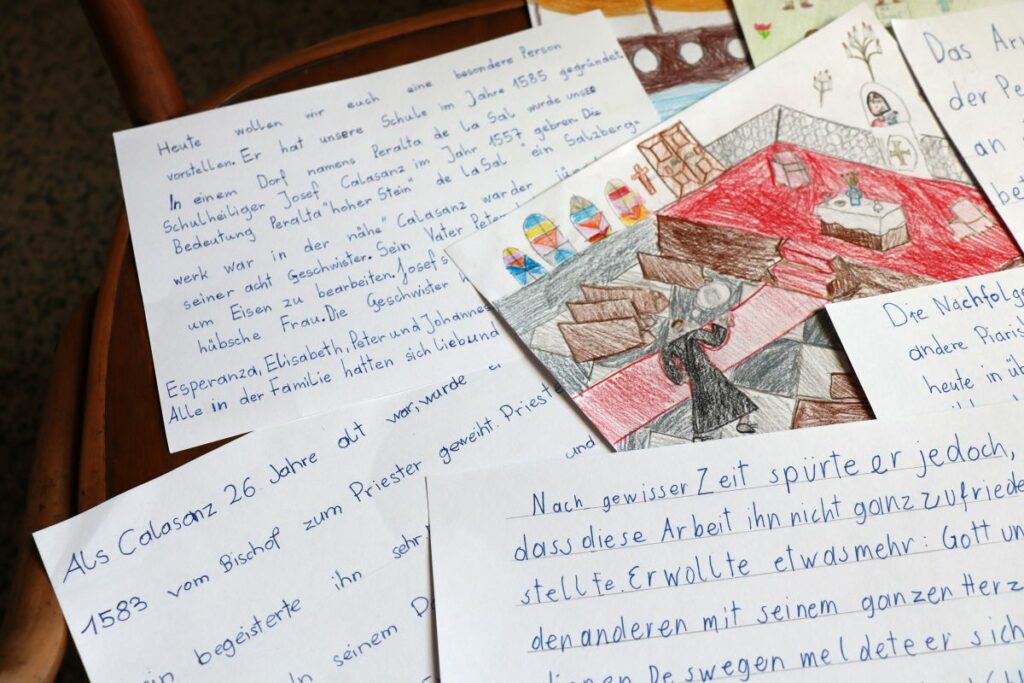 Heute wollen wir euch eine besondere Person
vorstellen. Er hat unsere Schule im Jahre 1585 gegründet.
In einem Dorf namens Peralta de la Sal wurde unser
Schulheiliger Josef Calasanz im Jahr 1557 gebren. Die
Bedeutung Peralta "hoher Stein" de la Sal " ein Salzberg-
werk war in der nähe" Calasanz war der
seiner acht Geschwister. Sein Vater
um Eisen zu bearbeiten. Josefs
hübsche Frau. Die Geschwister
Esperanza, Elisabeth, Peter und Johannes
Alle in der Familie hatten sich lieb und
Als Calasanz 26 Jahre alt war, wurde er
1583 vom Bischof zum Priester geweiht.
und
begeisterte ihn sehr
In seinem
Das
der
an
Die Nachfolge
andere Piaris
heute in
Nach gewisser Zeit spürte er jedoch,
dass diese Arbeit ihn nicht ganz zufriede
stellte. Er wollte etwas mehr: Gott un
den anderen mit seinem ganzen Herz
Deswegen meldete er sich